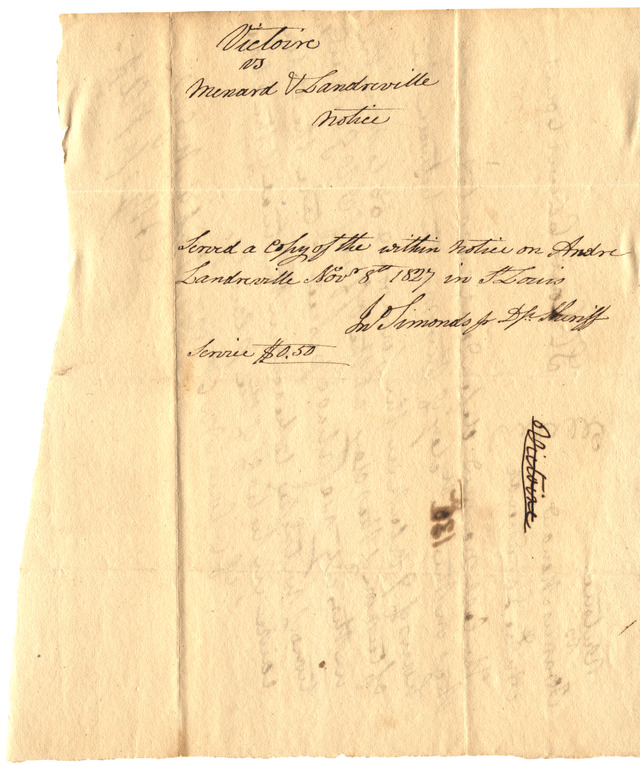 Victoire
vs
Menard & Landreville
Notice
Served a Copy of the within Notice on Andre
Landreville Novr 8th 1827 in St Louis
Jno Simonds jr Dp. Sheriff
Service $0.50
Victoire